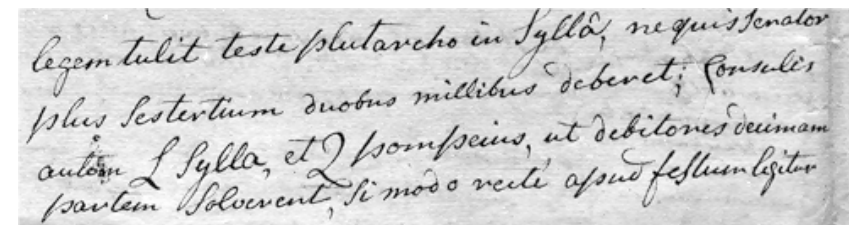 legem tulit teste plutarcho in Syllâ, nequis Senator
plus Sestertium duobus millibus deberet; Consules
autem L Sylla, et Q pompeius, ut debitores decimam
partem Solverent, Si modo recte apud festum legitur